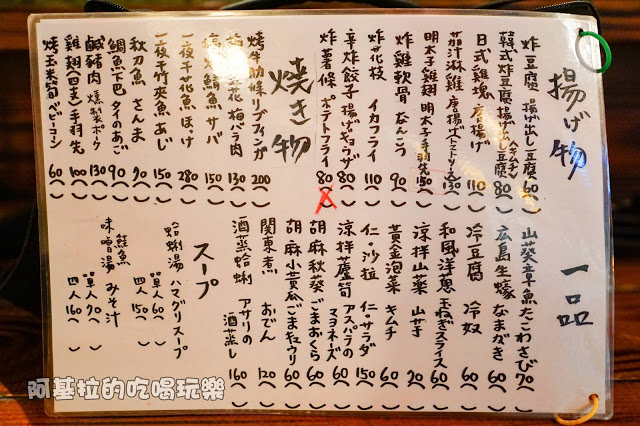 揚げ物
炸豆腐 揚げ出し豆腐 60( )
韓式炸豆腐 揚げ出し豆腐(キムチ) 80( )
日式雞塊 唐揚げ 110( )
茄汁淋雞 唐揚げトマトソース 130( )
明太子雞翅 明太子手羽先 150( )
炸雞軟骨 なんこつ 90( )
炸花枝 イカフライ 110( )
辛炸餃子 揚げギョウザ 80( )
炸薯條 ポテトフライ 80( )
焼き物
烤牛肋條 リブフィンガー 200( )
梅花 梅バラ肉 130( )
鯖魚 サバ 150( )
一夜干花魚 ほっけ 280( )
一夜干竹夾魚 あじ 150( )
秋刀魚 さんま 90( )
鯛魚下巴 タイのあご 90( )
鹹豬肉 燻製ポーク 130( )
雞翅(四支) 手羽先 100( )
烤玉米筍 ベビーコーン 60( )
一品
山葵章魚 たこわさび 70( )
広島生蠔 なまがき 60( )
冷豆腐 冷奴 60( )
和風洋蔥 玉ねぎスライス 60( )
涼拌山藥 山芋 90( )
黃金泡菜 キムチ 60( )
仁·沙拉 仁·サラダ 150( )
涼拌蘆筍 アスパラのマヨネーズ 60( )
胡麻秋葵 ごまおくら 60( )
胡麻小黃瓜 ごまキュウリ 60( )
関東煮 おでん 120( )
酒蒸蛤蜊 アサリの酒蒸し 160( )
スープ
蛤蜊湯 ハマグリスープ 單人60( ) 四人150( )
鮭魚味噌湯 みそ汁 單人70( ) 四人160( )
阿基拉的吃喝玩樂